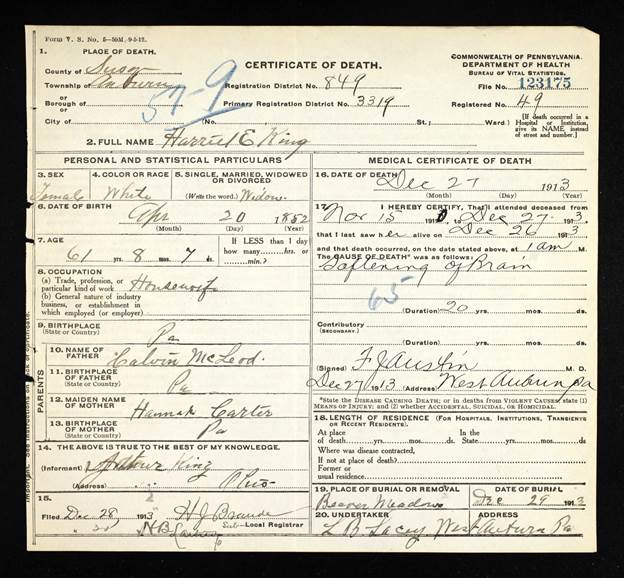 Form V. S. No. 5—50M. 9-5-12.
1. PLACE OF DEATH.
County of Susq
Township of Auburn
or
Borough of
or
City of (No. St.; Ward)
57-9
CERTIFICATE OF DEATH.
Registration District No. 849
Primary Registration District No. 3319
COMMONWEALTH OF PENNSYLVANIA.
DEPARTMENT OF HEALTH
BUREAU OF VITAL STATISTICS.
File No. 123175
Registered No. 49
[If death occurred in a Hospital or Institution, give its NAME, instead of street and number.]
2. FULL NAME Harriet E King
PERSONAL AND STATISTICAL PARTICULARS
3. SEX
Female
4. COLOR OR RACE
White
5. SINGLE, MARRIED, WIDOWED OR DIVORCED
(Write the word.) Widow
6. DATE OF BIRTH
Apr 20 1852
(Month) (Day) (Year)
7. AGE
61 yrs. 8 mos. 7 ds.
If LESS than 1 day how many hrs. or min.?
8. OCCUPATION
(a) Trade, profession, or particular kind of work Housewife
(b) General nature of industry business, or establishment in which employed (or employer)
9. BIRTHPLACE
(State or Country) Pa
PARENTS
10. NAME OF FATHER
Calvin McLeod
11. BIRTHPLACE OF FATHER
(State or Country) Pa
12. MAIDEN NAME OF MOTHER
Hannah Carter
13. BIRTHPLACE OF MOTHER
(State or Country) Pa
14. THE ABOVE IS TRUE TO THE BEST OF MY KNOWLEDGE.
(Informant) King
(Address)
15.
Filed Dec 28 1913 H J
Local Registrar
30 H B
MEDICAL CERTIFICATE OF DEATH
16. DATE OF DEATH
Dec 27 1913
(Month) (Day) (Year)
17. I HEREBY CERTIFY, That I attended deceased from
Nov 15 191 to Dec 27 1913
that I last saw her alive on Dec 26 1913
and that death occurred, on the date stated above, at 1 am M.
The CAUSE OF DEATH* was as follows:
Softening of Brain
65
(Duration) 20 yrs. mos. ds.
Contributory
(Secondary)
(Duration) yrs. mos. ds.
(Signed) F J Austin M. D.
Dec 27 1913 (Address) West Auburn Pa
*State the DISEASE CAUSING DEATH; or in deaths from VIOLENT CAUSES, state (1) MEANS OF INJURY; and (2) whether ACCIDENTAL, SUICIDAL, or HOMICIDAL.
18. LENGTH OF RESIDENCE (FOR HOSPITALS, INSTITUTIONS, TRANSIENTS OR RECENT RESIDENTS).
At place of death yrs. mos. ds. In the State yrs. mos. ds.
Where was disease contracted, if not at place of death?
Former or usual residence
19. PLACE OF BURIAL OR REMOVAL
Beaver Meadows
DATE OF BURIAL
Dec 29 1913
20. UNDERTAKER
L B Lacey
ADDRESS
West Auburn Pa